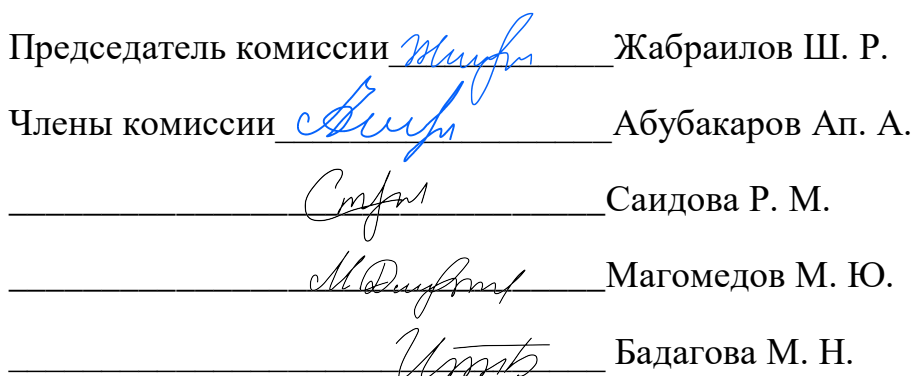 Председатель комиссии____________Жабраилов Ш. Р.
Члены комиссии__________________Абубакаров Ап. А.
________________________________Саидова Р. М.
________________________________Магомедов М. Ю.
________________________________ Бадагова М. Н.